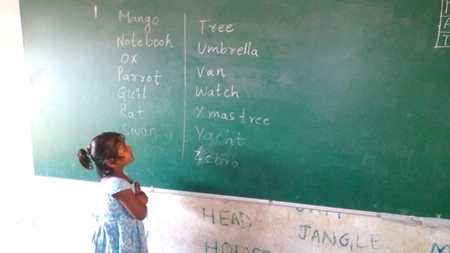 1
Mango
Notebook
Ox
Parrot
Quil
Rat
Swan
Tree
Umbrella
Van
Watch
Xmastree
Yacht
Zebra
HEAD
JANGLE